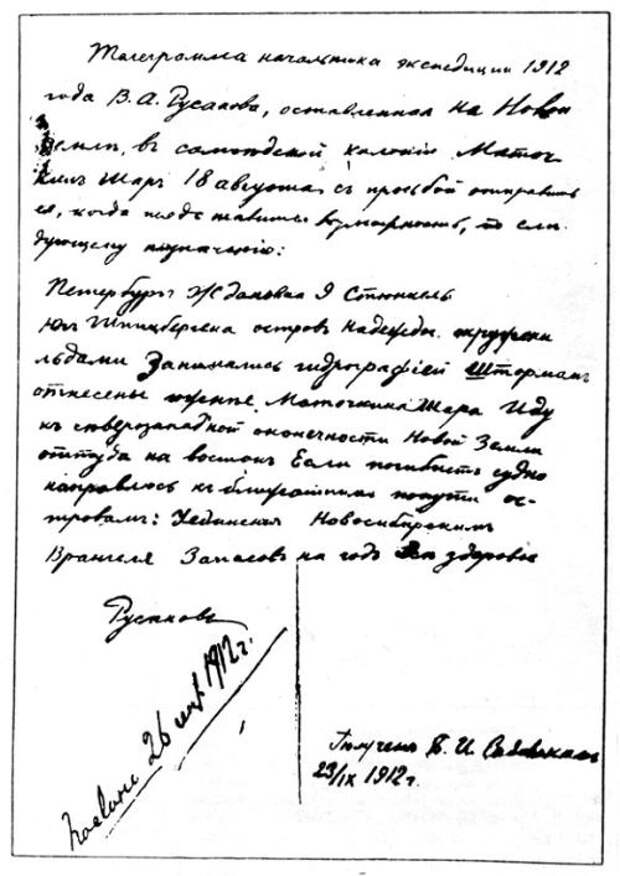 Телеграмма начальника экспедиции 1912
года В. А. Русанова, оставленная на Новой
Землѣ, въ самоѣдской колоніи Маточ-
кинъ Шаръ 18 августа съ просьбой отправить
ея, когда представится возможность, по слѣ-
дующему назначенію:
Петербургъ Ждановка 9 Стюнкель
Югъ Шпицбергена островъ Надежды окружены
льдами Занимались гидрографіей Штормомъ
отнесены южнѣе Маточкина Шара Иду
къ сѣверозападной оконечности Новой Земли
оттуда на востокъ Если погибнетъ судно
направлюсь къ ближайшимъ попути ос-
тровамъ: Уединенія Новосибирскимъ
Врангеля Запасовъ на годъ Всѣ здоровы
Русановъ
26 1912 г.
Полученъ И.
23/IX 1912 г.